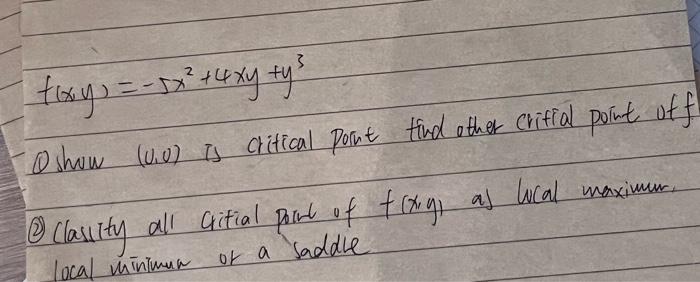 f(x,y) = -5x² + 4xy + y³
① show (0,0) is critical point find other critial point of f
② Classify all Critial point of f(x,y) as local maximum,
local minimum or a saddle